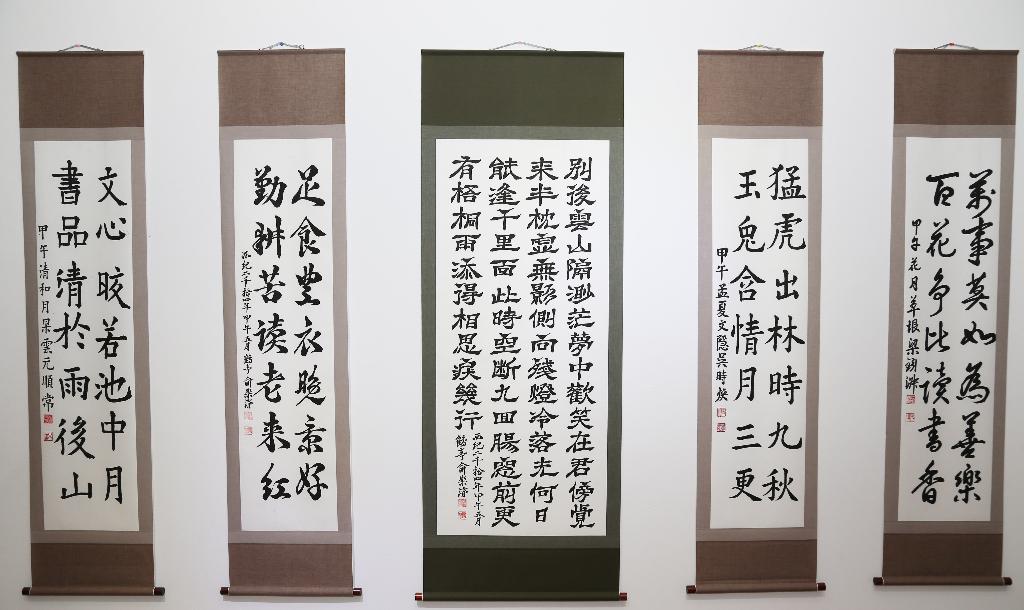 文心皎若池中月
書品清於雨後山
甲午清和月杲雲元順常
足食豊衣晚景好
勤耕苦读老来红
西紀二千拾四年甲午五月
别後雲山隔渺茫夢中歡笑在君傍覺
来半枕虛無影側向殘燈冷落光何日
能逢千里面此時空斷九回腸窓前更
有梧桐雨添得相思淚幾行
西紀二千拾四年甲午五月
猛虎出林時九秋
玉兎含情月三更
甲午孟夏文隱吳時煥
萬事莫如為善樂
百花争比读書香
甲午花月草垠梁